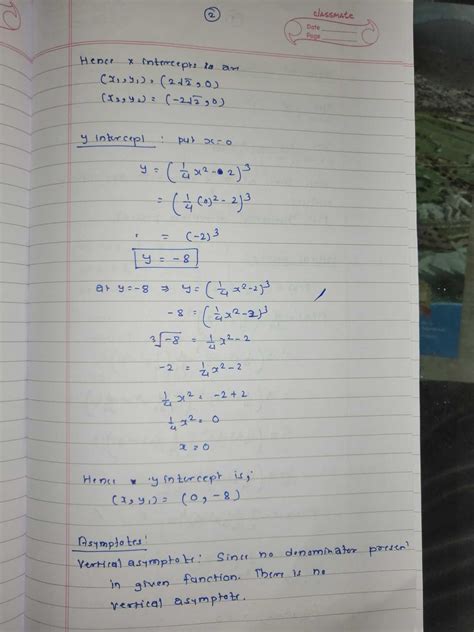 ②
classmate
Date
Page
Hence x intercepts is are
(x₁,y₁) = (2√2, 0)
(x₂,y₂) = (-2√2, 0)
y intercept : put x=0
y = (1/4 x² - 2)³
= (1/4 (0)² - 2)³
= (-2)³
y = -8
at y=-8 ⇒ y = (1/4 x²-2)³
-8 = (1/4 x²-2)³
³√-8 = 1/4 x²-2
-2 = 1/4 x²-2
1/4 x² = -2+2
1/4 x² = 0
x = 0
Hence y intercept is,
(x, y₁) = (0, -8)
Asymptotes:
Vertical asymptote: Since no denominator present
in given function. There is no
vertical asymptote.